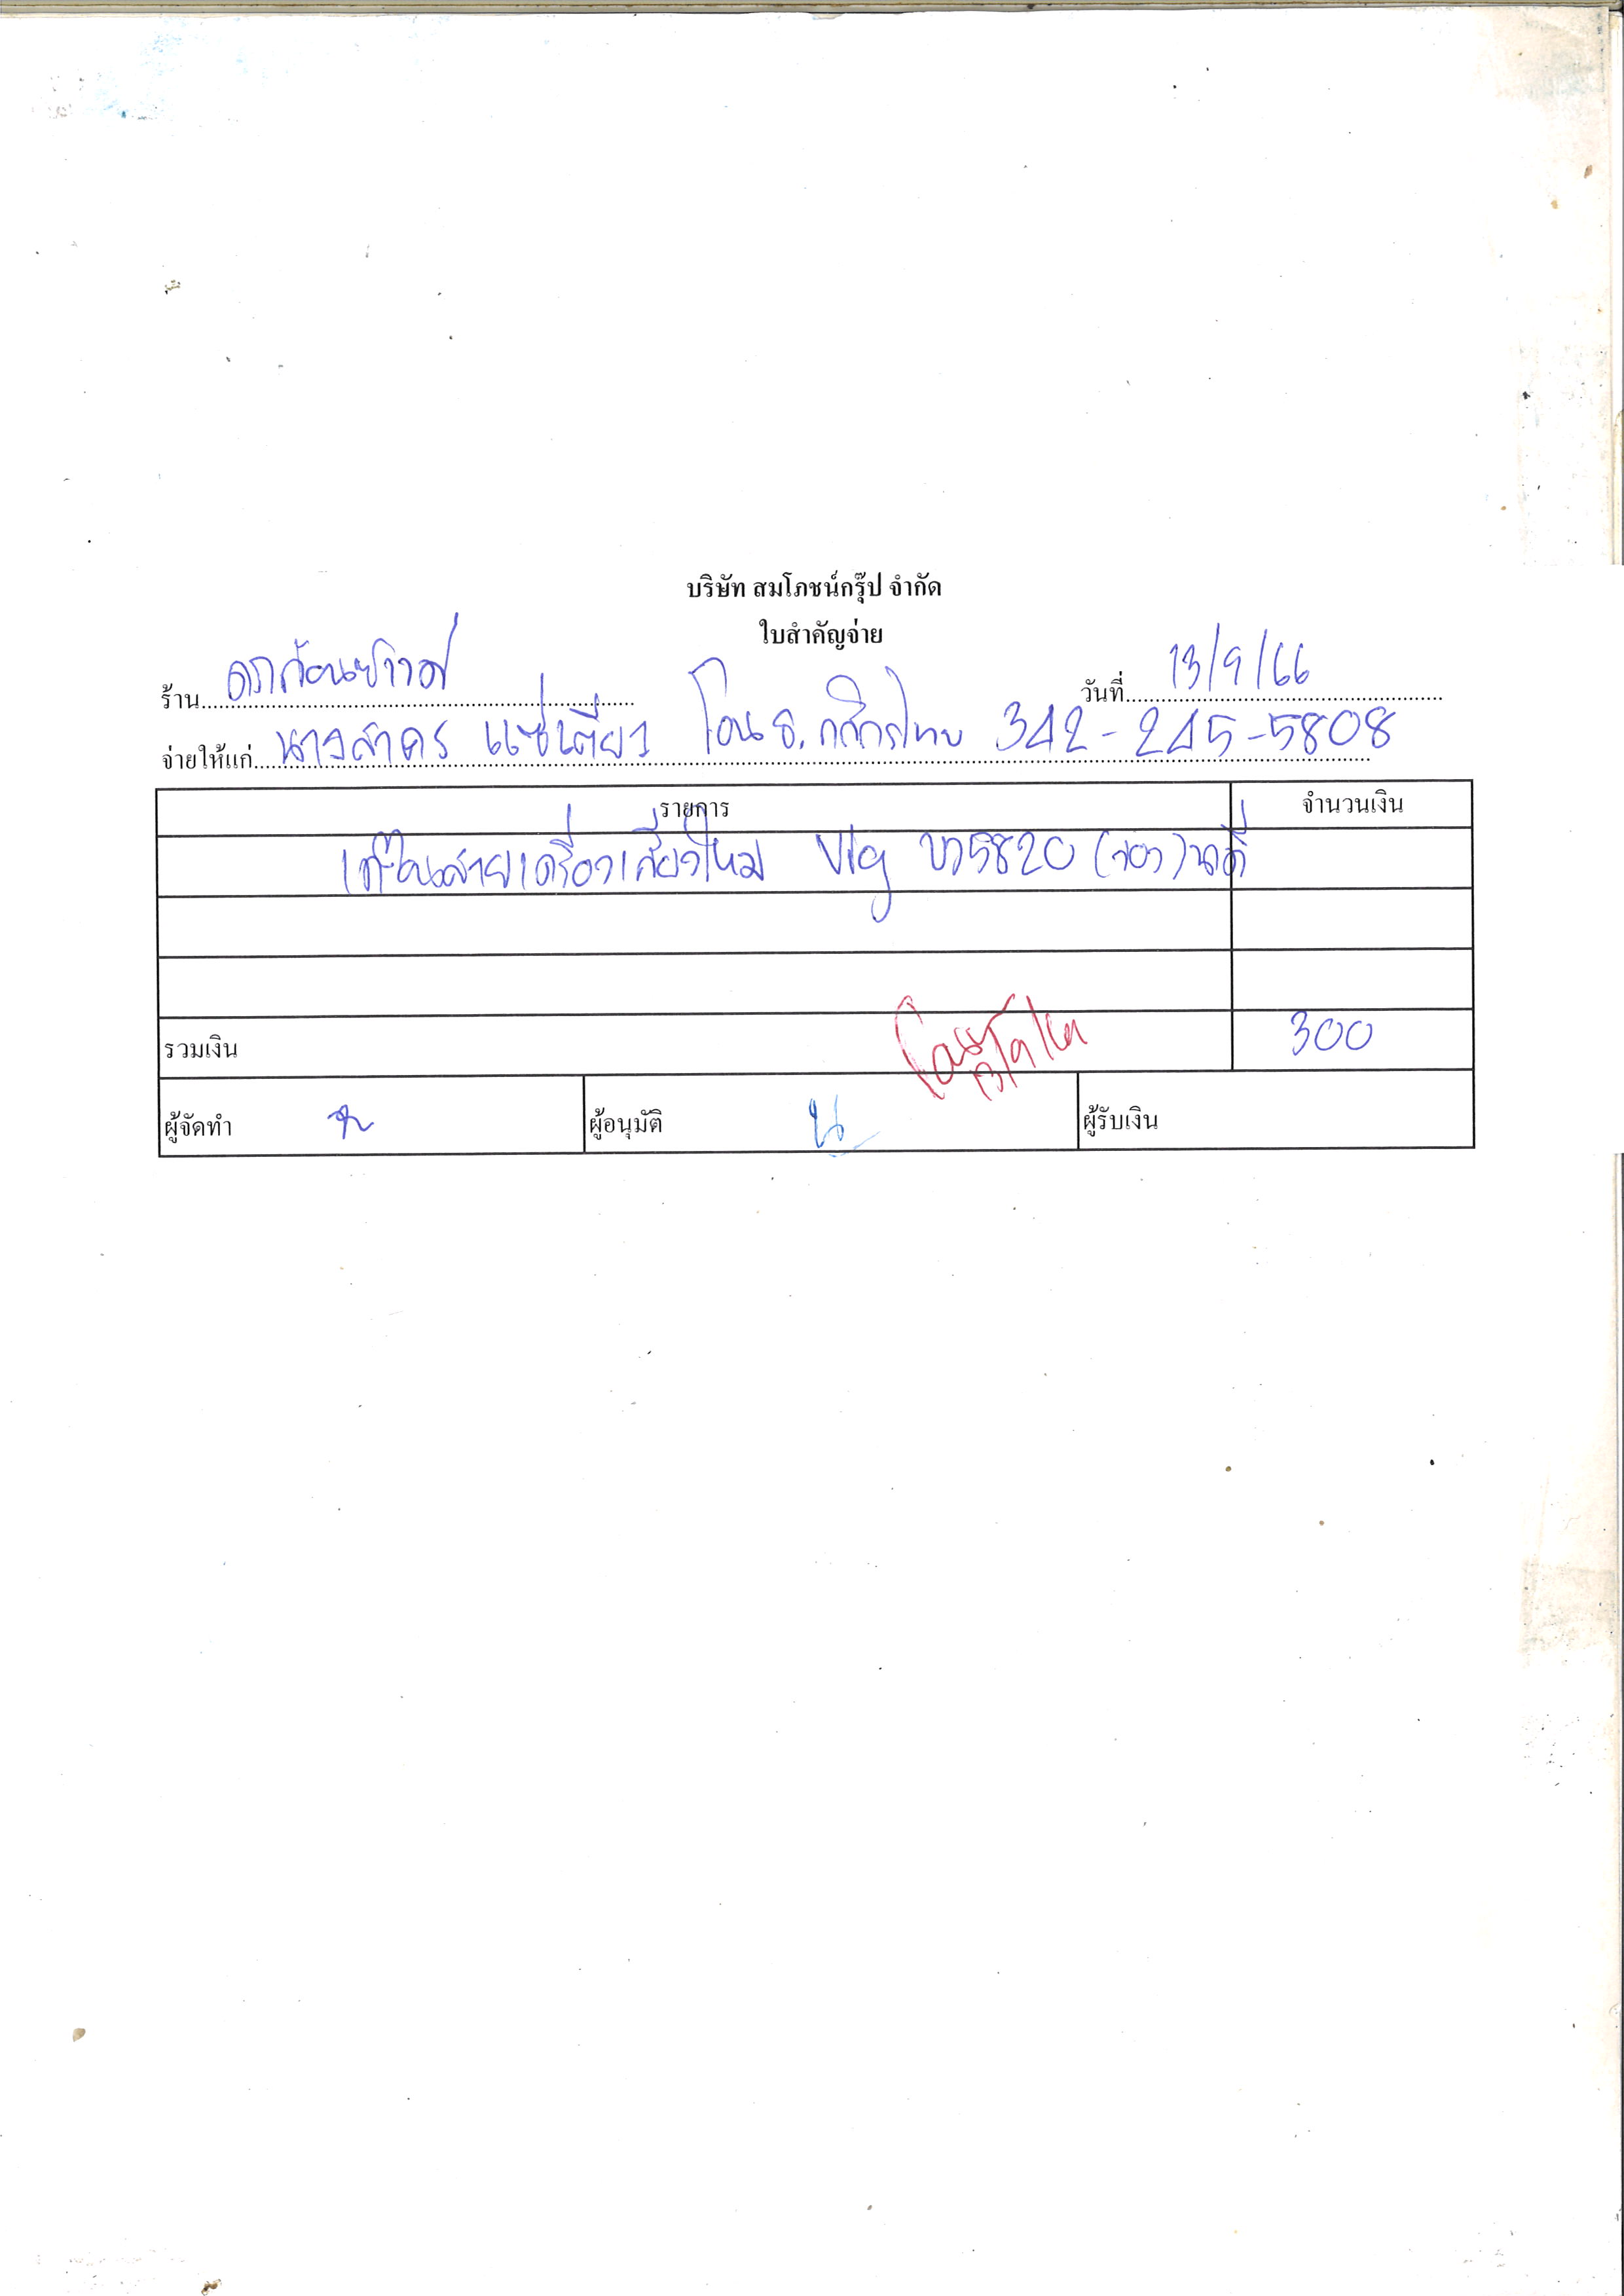 บริษัท สมโภชน์กรุ๊ป จำกัด
ใบสำคัญจ่าย
ร้าน
วันที่ 13/9/66
จ่ายให้แก่ นางสาคร แซ่เตียว โอน ธ.กสิกรไทย 342-245-5808
รายการ จำนวนเงิน
สายเครื่องเสียงใหม่ Vig บว5820 (จอง) นาดี
รวมเงิน 300
โอนแล้ว 13/9/66
ผู้จัดทำ ผู้อนุมัติ น ผู้รับเงิน